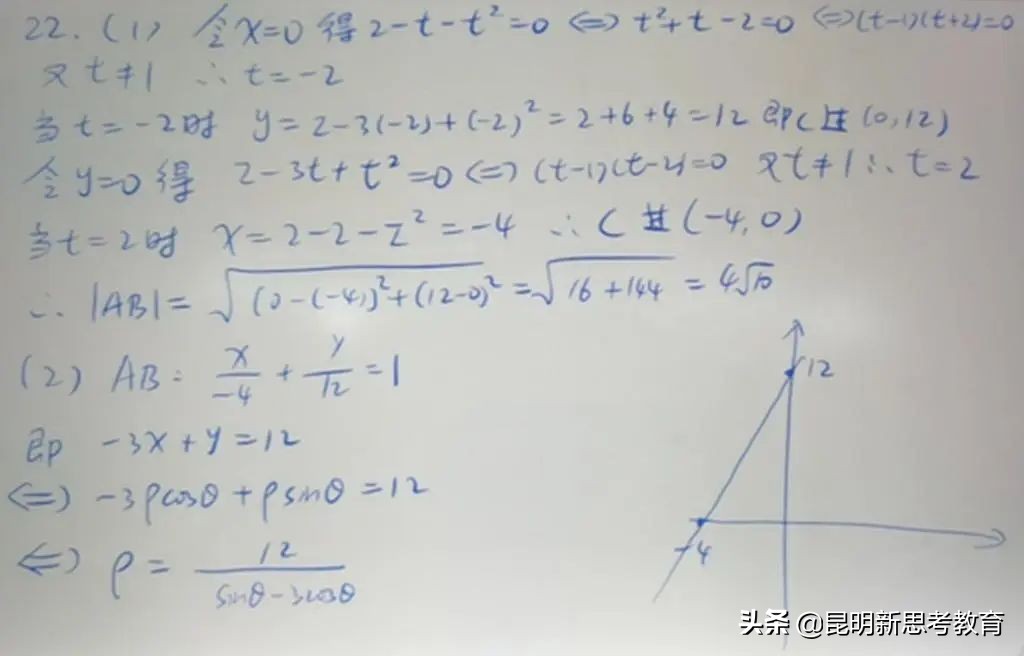 22. (1) 令x=0 得 2-t-t²=0 ⇔ t²+t-2=0 ⇔(t-1)(t+2)=0
又t≠1 ∴t=-2
当t=-2时 y=2-3(-2)+(-2)²=2+6+4=12 即C过(0,12)
令y=0得 2-3t+t²=0⇔(t-1)(t-2)=0 又t≠1∴t=2
当t=2时 x=2-2-2²=-4 ∴C过(-4,0)
∴|AB|=√((0-(-4))²+(12-0)²)=√(16+144)=4√10
(2) AB: x/-4 + y/12 =1
即 -3x+y=12
⇔ -3ρcosθ+ρsinθ=12
⇔ ρ= 12/(sinθ-3cosθ)
12
-4
头条 @昆明新思考教育